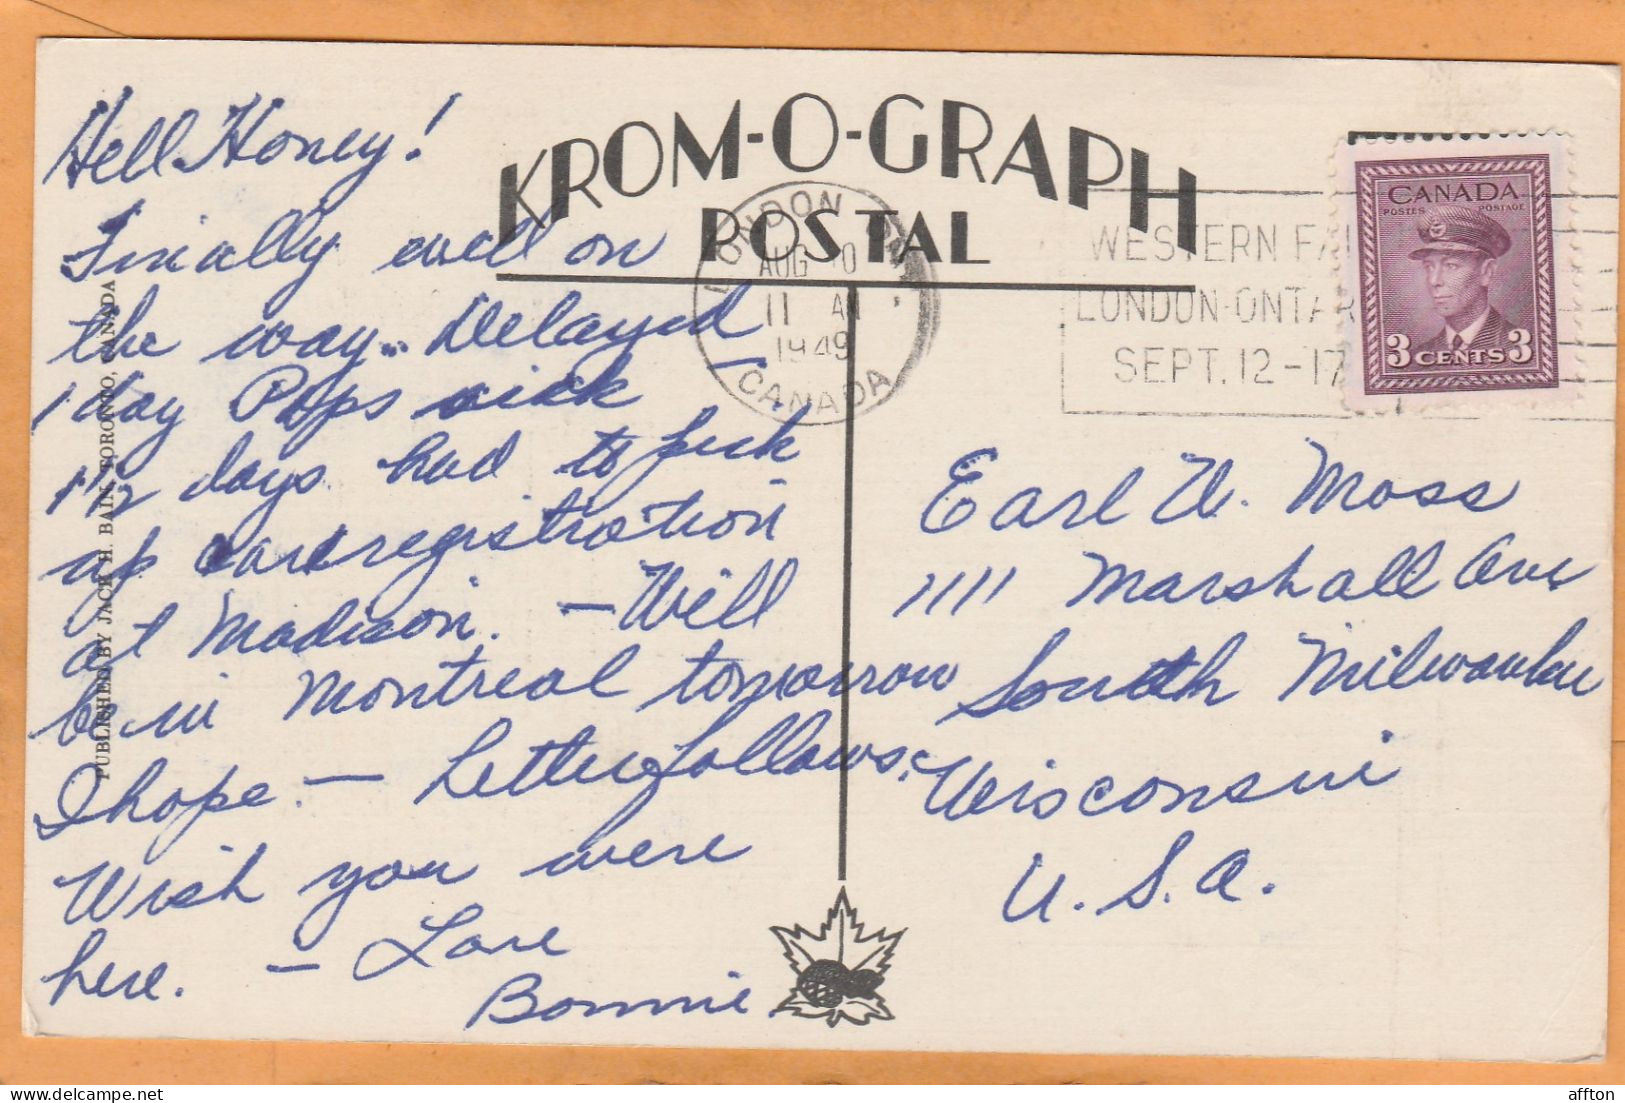 KROM-O-GRAPH
POSTAL
LONDON ONT.
AUG 10
11 AM
1949
CANADA
WESTERN FAI
LONDON-ONTAR
SEPT. 12-17
CANADA
POSTES POSTAGE
3 CENTS 3
Hell Honey!
Finally well on
the way.. Delayed
1 day Pops sick
1 1/2 days had to pick
up car registration
at Madison. - Will
be in Montreal tomorrow
I hope. - Letter follows.
Wish you were
here. - Love
Bonnie.
Earl W. Moss
1111 Marshall Ave
South Milwaukee
Wisconsin
U.S.A.
PUBLISHED BY JACK H. BAIN, TORONTO, CANADA
affton